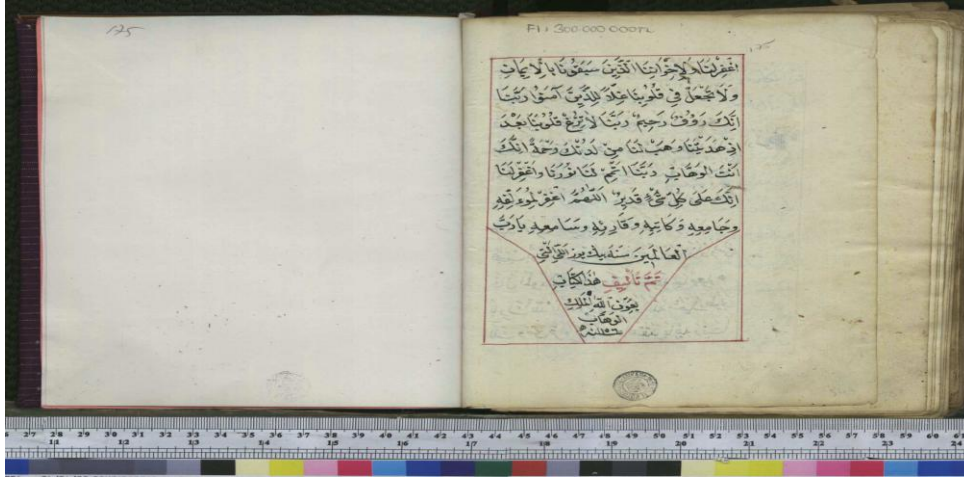 175
Fi: 300.000.000TL
175
اغفِرْلَنَا وَلِاِخْوَانِنَا الَّذِينَ سَبَقُونَا بِالْاِيمَانِ
وَلَا تَجْعَلْ فِي قُلُوبِنَا غِلًّا لِلَّذِينَ آمَنُوا رَبَّنَا
اِنَّكَ رَؤُفٌ رَحِيمٌ رَبَّنَا لَا تُزِغْ قُلُوبَنَا بَعْدَ
اِذْ هَدَيْتَنَا وَهَبْ لَنَا مِنْ لَدُنْكَ رَحْمَةً اِنَّكَ
اَنْتَ الْوَهَّابُ رَبَّنَا اَتْمِمْ لَنَا نُورَنَا وَاغْفِرْلَنَا
اِنَّكَ عَلَى كُلِّ شَيْءٍ قَدِيرٌ اَللّٰهُمَّ اغْفِرْ لِمُؤَلِّفِهِ
وَجَامِعِهِ وَكَاتِبِهِ وَقَارِئِهِ وَسَامِعِهِ يَا رَبَّ
الْعَالَمِينَ سنه بيك يوز
تَمَّ تَأْلِيفِ هٰذَا كِتَابِ
بِعَوْنِ اللّٰهِ الْمَلِكِ
الْوَهَّابِ